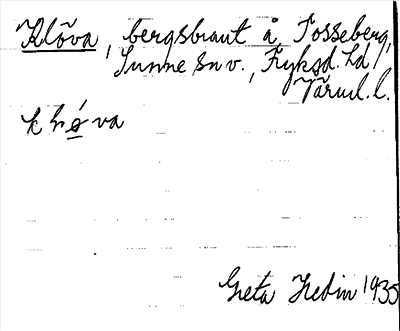 Klõva, bergsbrant å Tosseberg,
Sunne snv., Fryksd. hd,
Värml. l.
Greta Hedin 1935